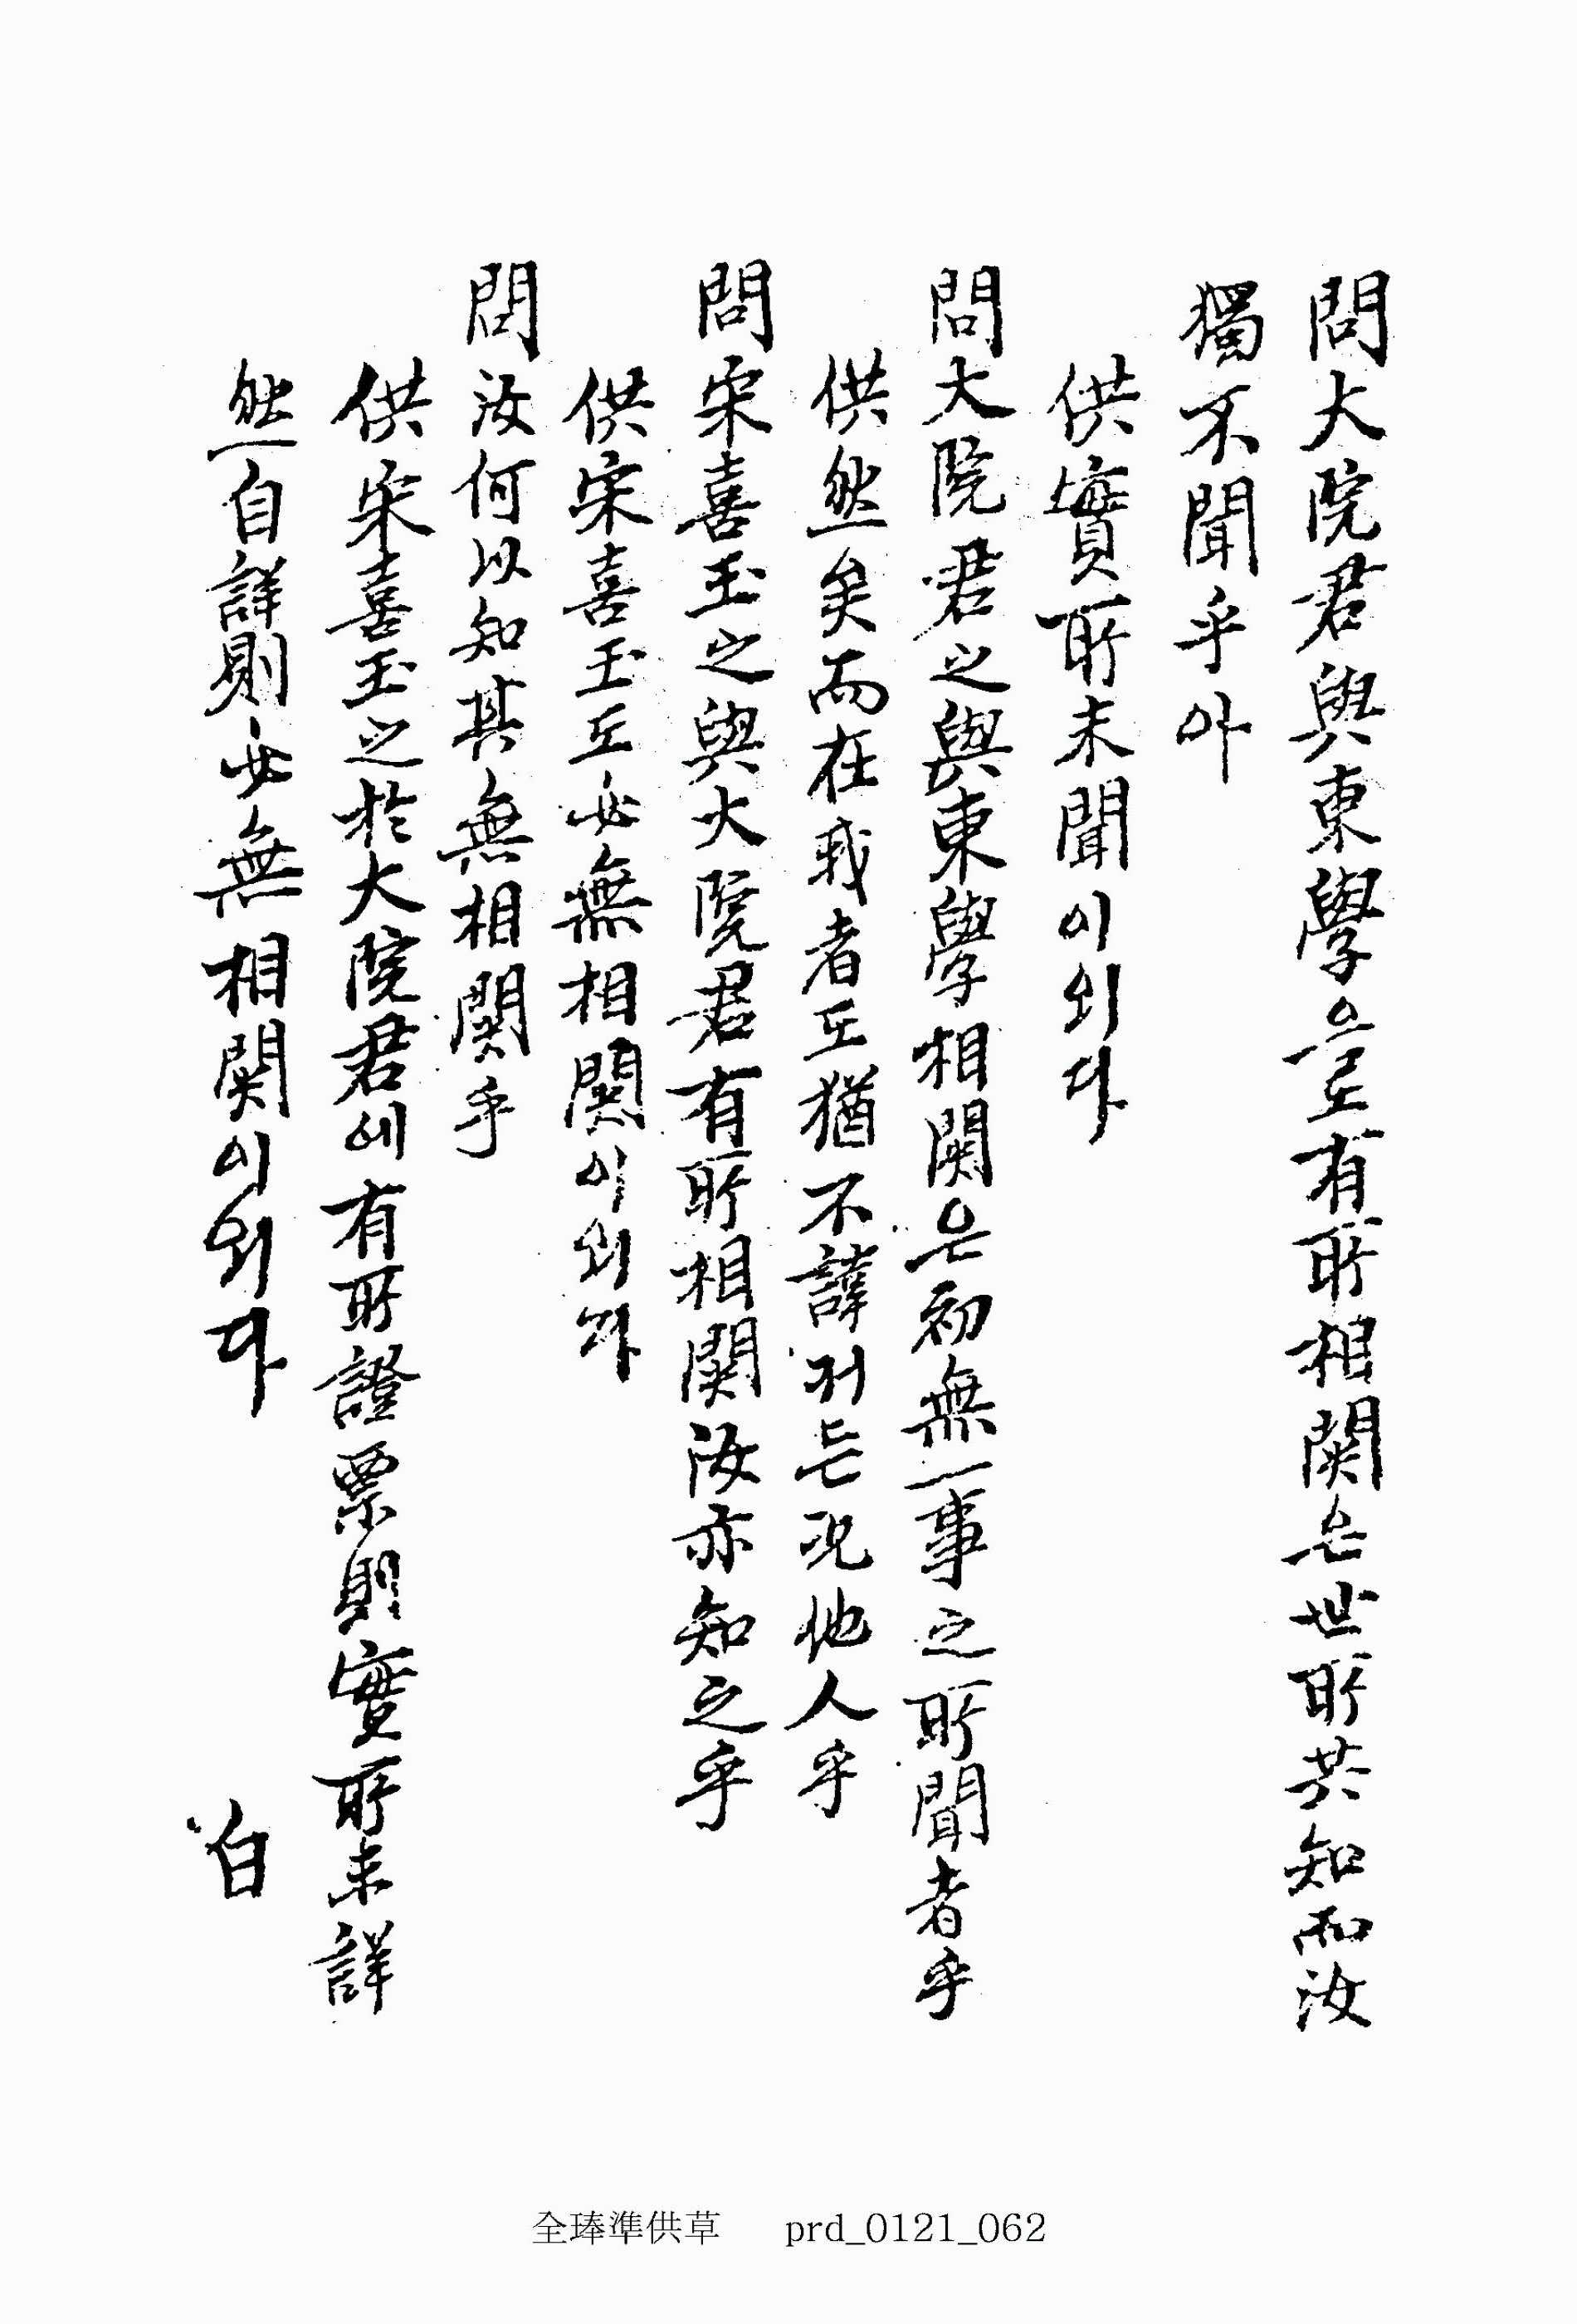 問大院君與東學으로有所相關은世所共知而汝
獨不聞乎아
供實所未聞이외다
問大院君之與東學相關은初無一事之所聞者乎
供然矣而在我者도猶不諱거든況他人乎
問宋喜玉之與大院君有所相關汝亦知之乎
供宋喜玉도必無相關이외다
問汝何以知其無相關乎
供宋喜玉之於大院君에有所證票則實所未詳
然自詳則必無相關이외다 白
全琫準供草 prd_0121_062